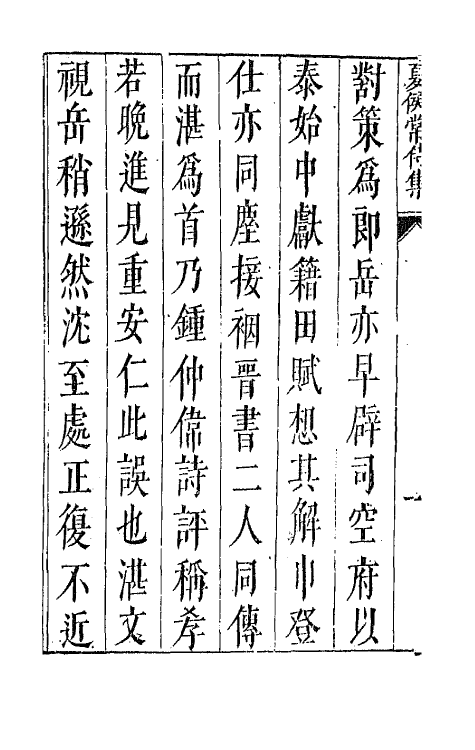 夏侯常侍集
對策爲郎岳亦早辟司空府以
泰始中獻籍田賦想其解巾登
仕亦同塵接裀晉書二人同傳
而湛爲首乃鍾仲偉詩評稱孝
若晚進見重安仁此誤也湛文
視岳稍遜然沈至處正復不近
一